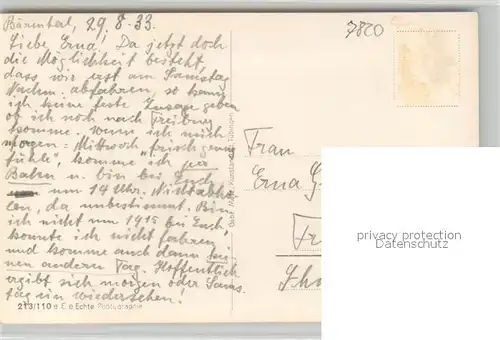 Bärental, 29.8.33.
7820
Liebe Erna! Da jetzt doch
die Möglichkeit besteht,
dass wir erst am Samstag
Nachm. abfahren, so kann
ich keine feste Zusage geben
ob ich noch nach Freiburg
komme. Wenn ich mich
morgen = Mittwoch frisch genug
fühle, komme ich per
Bahn u. bin bei Euch
um 14 Uhr. Nicht abho-
len, da unbestimmt. Bin
ich nicht um 1915 bei Euch,
konnte ich nicht fahren
und komme auch dann kei-
nen anderen Tag. Hoffentlich
ergibt sich morgen oder Sams-
tag ein Wiedersehen!
213/110 Echte Photographie
Gebr. Metz, Tübingen
Frau
Erna G
privacy protection
Datenschutz